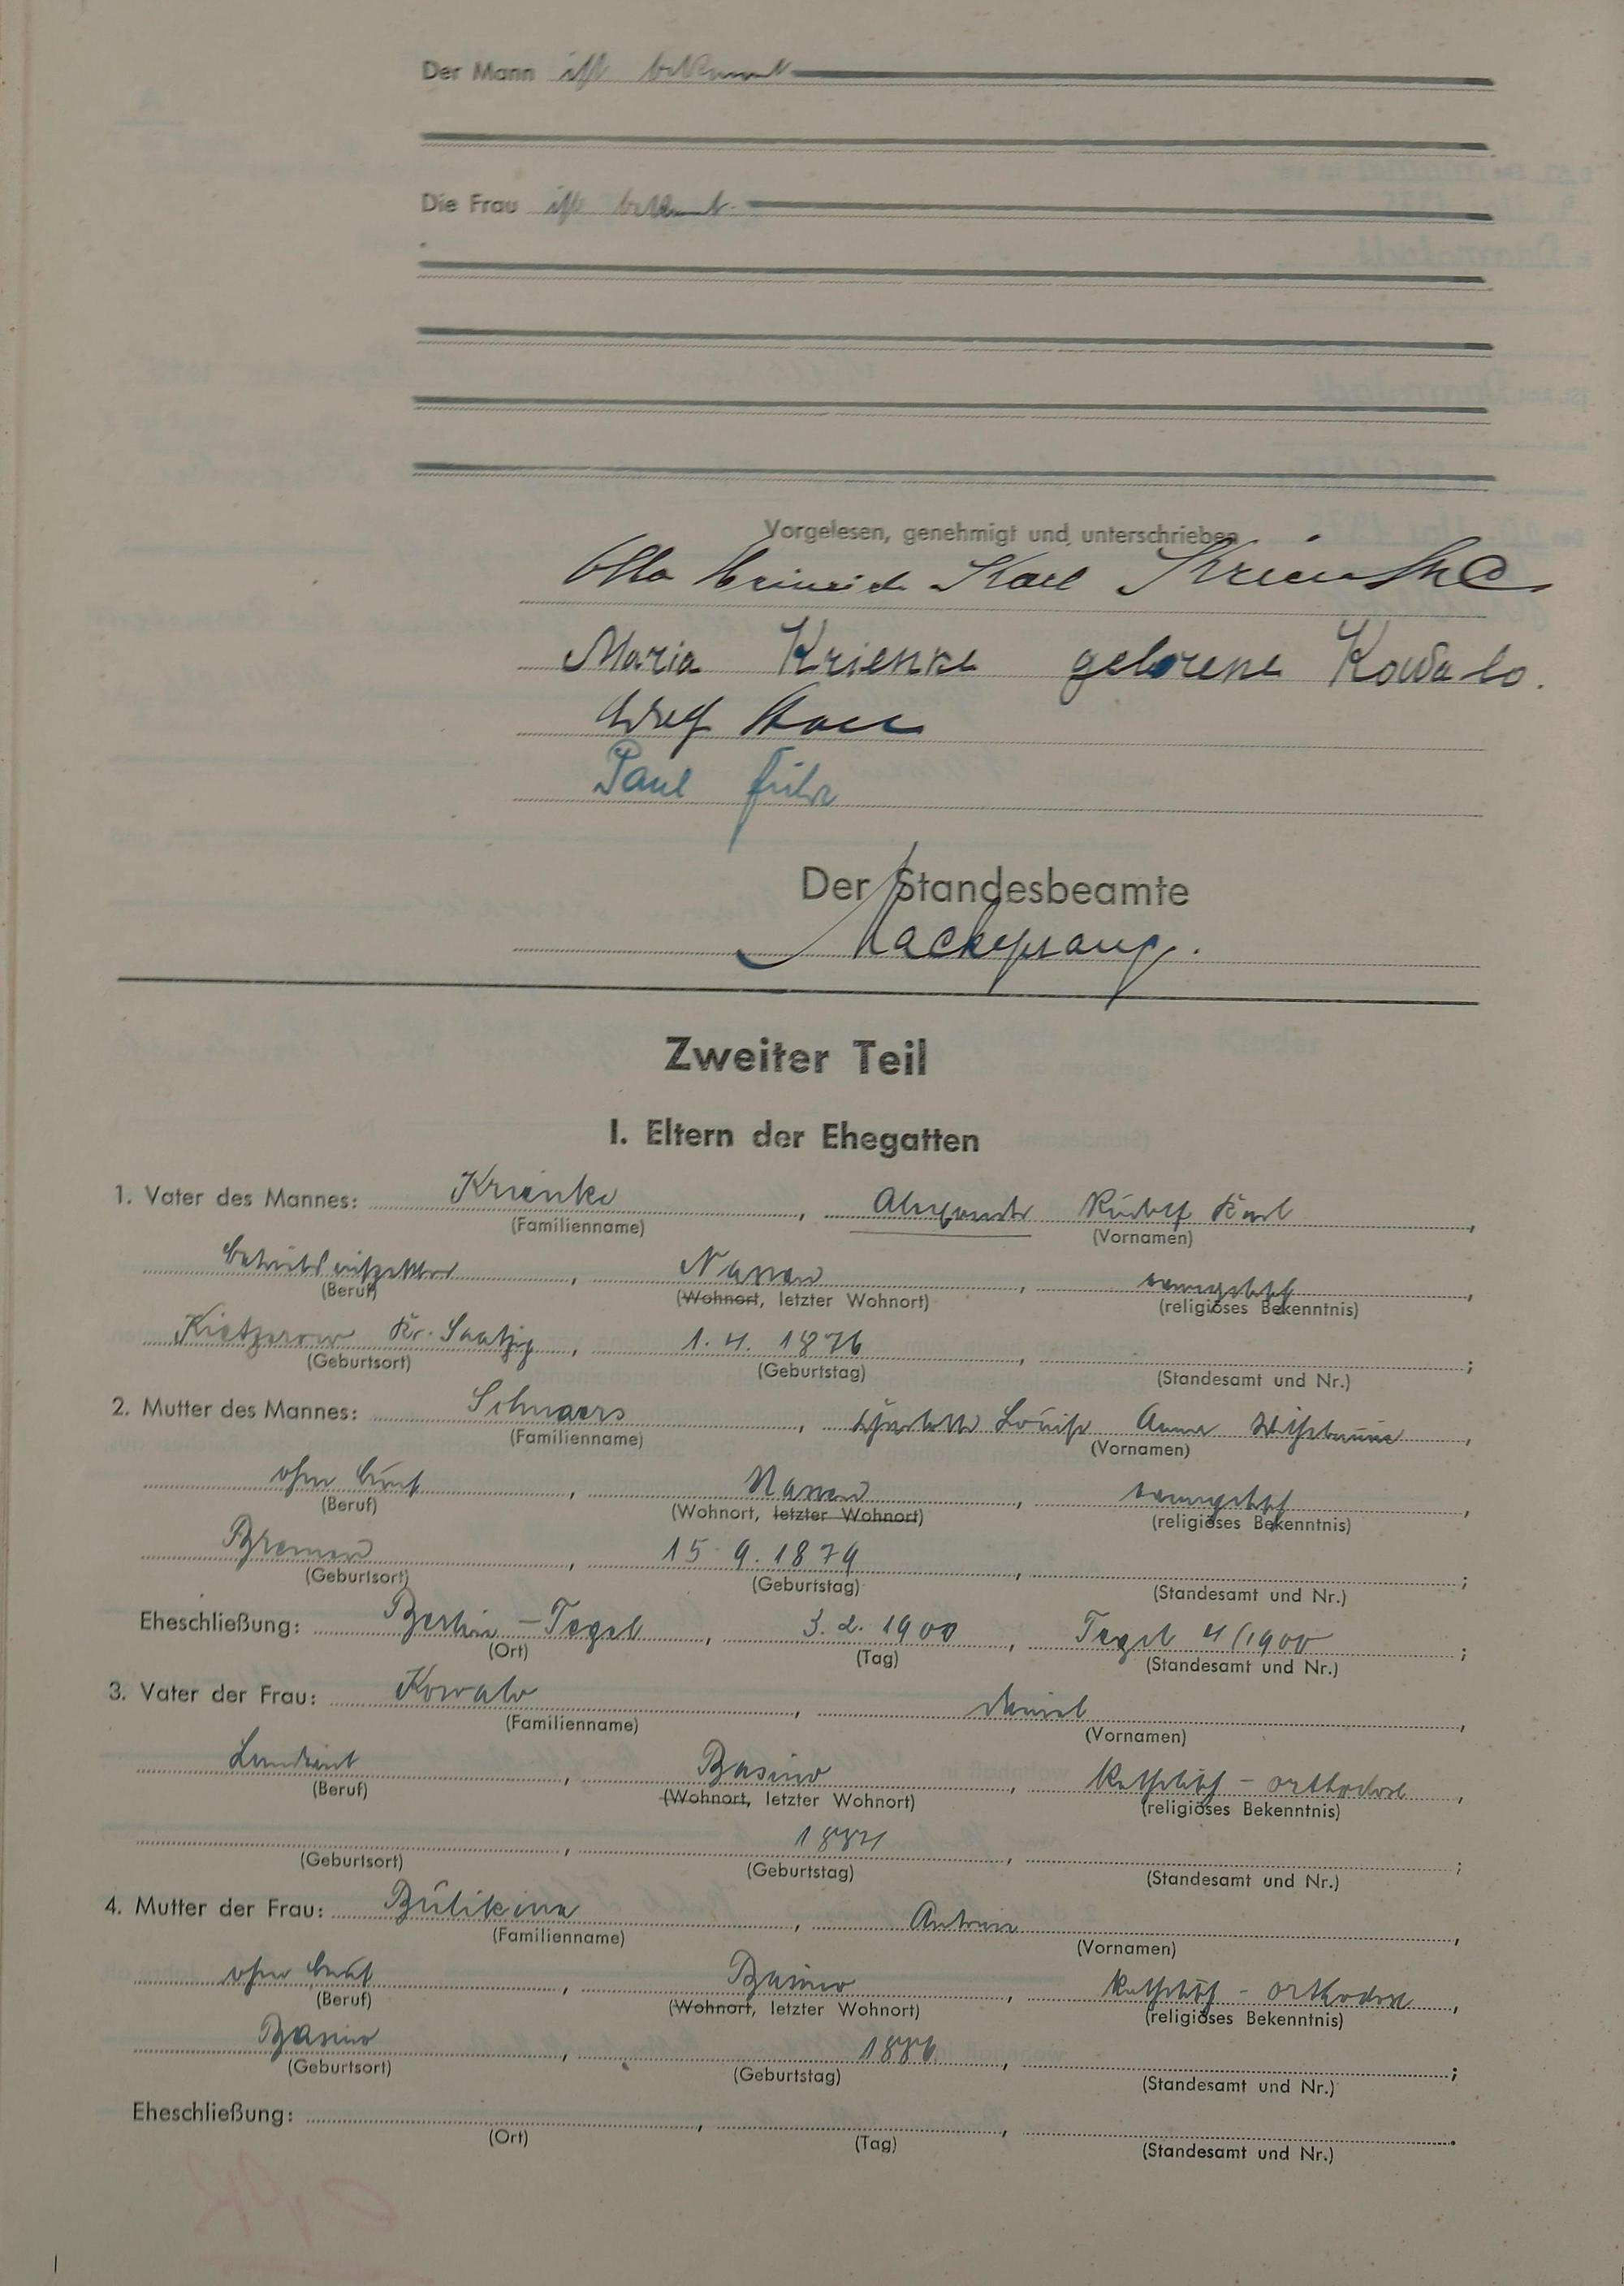 Der Mann ist bekannt
Die Frau ist bekannt
Vorgelesen, genehmigt und unterschrieben
Otto Heinrich Karl Krienke
Maria Krienke geborene Kowalo.
Paul Führ
Der Standesbeamte
Mackeprang.
Zweiter Teil
I. Eltern der Ehegatten
1. Vater des Mannes: Krienke, Alexander Rudolf Karl,
(Familienname) (Vornamen)
Betriebsinspektor, Nassau, evangelisch,
(Beruf) (Wohnort, letzter Wohnort) (religiöses Bekenntnis)
Kr. Saatzig, 1. 4. 1876, ;
(Geburtsort) (Geburtstag) (Standesamt und Nr.)
2. Mutter des Mannes: Schnaars, Charlotte Louise Anna Wilhelmine,
(Familienname) (Vornamen)
ohne Beruf, Nassau, evangelisch,
(Beruf) (Wohnort, letzter Wohnort) (religiöses Bekenntnis)
Bremen, 15. 9. 1879, ;
(Geburtsort) (Geburtstag) (Standesamt und Nr.)
Eheschließung: Berlin-Tegel, 3. 2. 1900, Tegel 4/1900;
(Ort) (Tag) (Standesamt und Nr.)
3. Vater der Frau: Kowalo, Daniel,
(Familienname) (Vornamen)
Landwirt, Basino, katholisch-orthodox,
(Beruf) (Wohnort, letzter Wohnort) (religiöses Bekenntnis)
, 1884, ;
(Geburtsort) (Geburtstag) (Standesamt und Nr.)
4. Mutter der Frau: Bulikina, Antonia,
(Familienname) (Vornamen)
ohne Beruf, Basino, katholisch-orthodox,
(Beruf) (Wohnort, letzter Wohnort) (religiöses Bekenntnis)
Basino, 1886, ;
(Geburtsort) (Geburtstag) (Standesamt und Nr.)
Eheschließung: , , .
(Ort) (Tag) (Standesamt und Nr.)